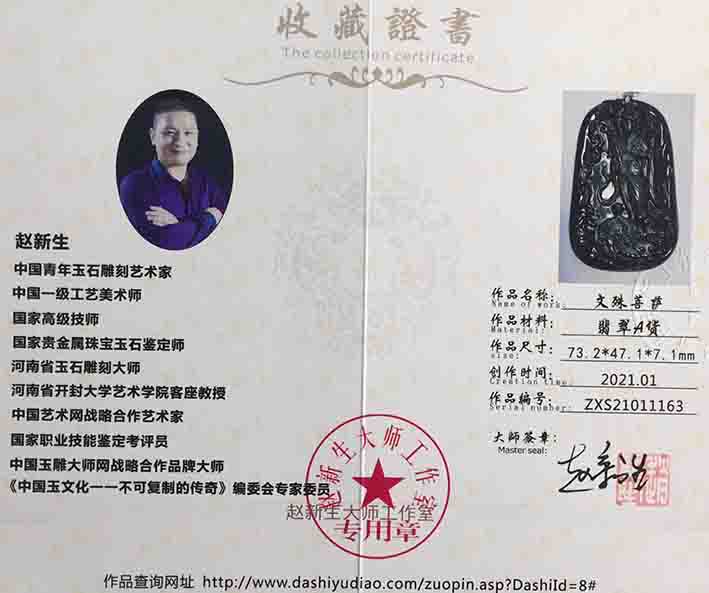 收藏證書
The collection certificate
赵新生
中国青年玉石雕刻艺术家
中国一级工艺美术师
国家高级技师
国家贵金属珠宝玉石鉴定师
河南省玉石雕刻大师
河南省开封大学艺术学院客座教授
中国艺术网战略合作艺术家
国家职业技能鉴定考评员
中国玉雕大师网战略合作品牌大师
《中国玉文化一一不可复制的传奇》编委会专家委员
作品名称: 文殊菩萨
Name of work:
作品材料: 翡翠A货
Material:
作品尺寸: 73.2*47.1*7.1mm
size:
创作时间: 2021.01
Creation time:
作品编号: ZXS21011163
Serial number:
大师签章:
Master seal:
赵新生
赵新生大师工作室
专用章
赵新生大师工作室
作品查询网址 http://www.dashiyudiao.com/zuopin.asp?DashiId=8#